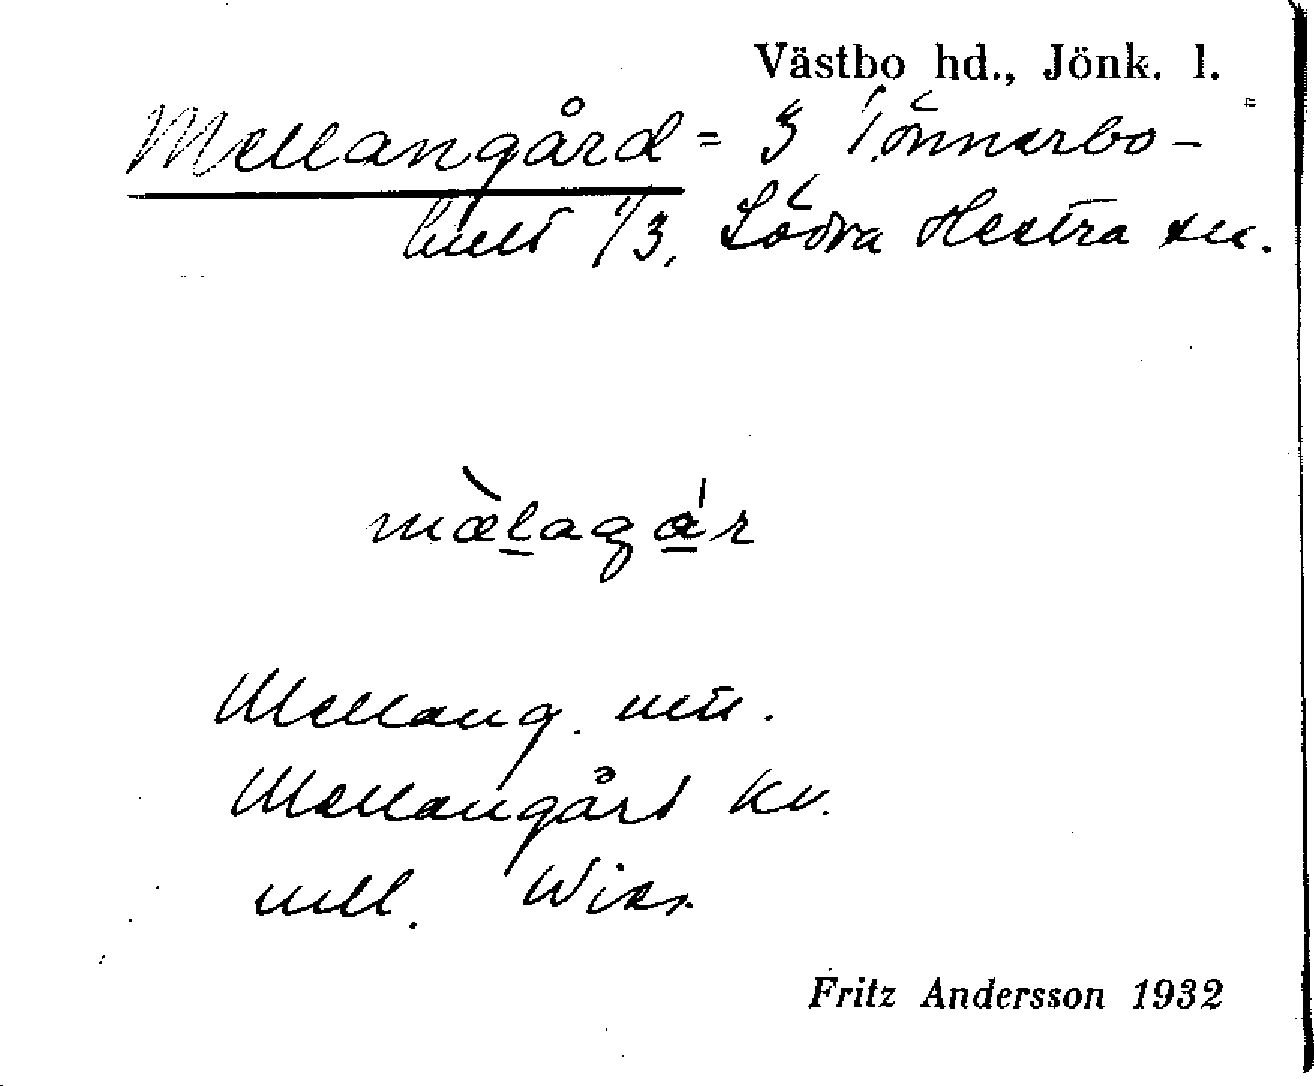 Västbo hd., Jönk. l.
Mellangård = 3 Tönnerbo-
hult 1/3, Södra Hestra sn.
mæ̀lagár
Mellang. mtl.
Mellangård kv.
mll. Wier
Fritz Andersson 1932